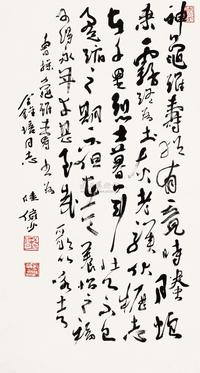 神龜雖壽猶有竟時螣蛇
乘霧終為土灰老驥伏櫪志
在千里烈士暮年壯心不已
盈縮之期不但在天養怡之福
可得永年幸甚至哉歌以咏志
曹操龜雖壽書為
培同志 陸儼少